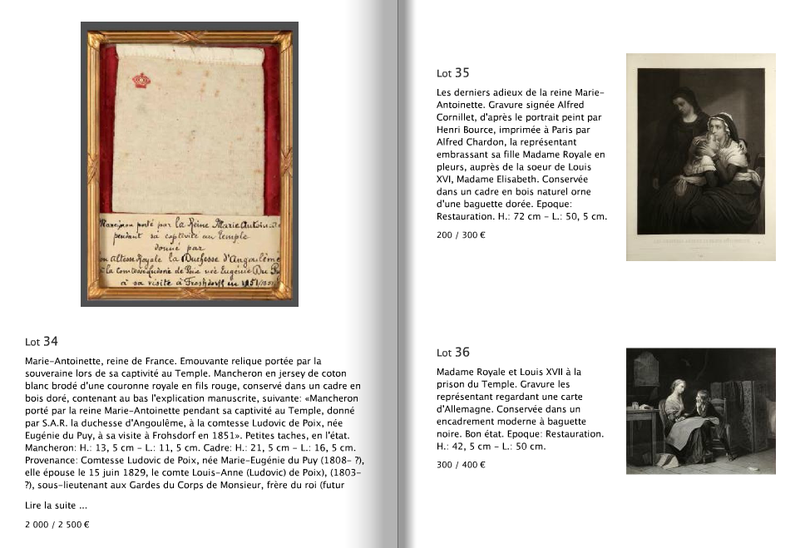 Mancheron porté par la Reine Marie Antoin
pendant sa captivité au Temple
donné par
Altesse Royale la Duchesse d'Angoulême
à la Comtesse Ludovic de Poix née Eugénie Du
à sa visite à Frohsdorf en 1851
Lot 34
Marie-Antoinette, reine de France. Emouvante relique portée par la
souveraine lors de sa captivité au Temple. Mancheron en jersey de coton
blanc brodé d'une couronne royale en fils rouge, conservé dans un cadre en
bois doré, contenant au bas l'explication manuscrite, suivante: «Mancheron
porté par la reine Marie-Antoinette pendant sa captivité au Temple, donné
par S.A.R. la duchesse d'Angoulême, à la comtesse Ludovic de Poix, née
Eugénie du Puy, à sa visite à Frohsdorf en 1851». Petites taches, en l'état.
Mancheron: H.: 13, 5 cm – L.: 11, 5 cm. Cadre: H.: 21, 5 cm – L.: 16, 5 cm.
Provenance: Comtesse Ludovic de Poix, née Marie-Eugénie du Puy (1808- ?),
elle épouse le 15 juin 1829, le comte Louis-Anne (Ludovic) de Poix), (1803-
?), sous-lieutenant aux Gardes du Corps de Monsieur, frère du roi (futur
Lire la suite ...
2 000 / 2 500 €
Lot 35
Les derniers adieux de la reine Marie-
Antoinette. Gravure signée Alfred
Cornillet, d'après le portrait peint par
Henri Bource, imprimée à Paris par
Alfred Chardon, la représentant
embrassant sa fille Madame Royale en
pleurs, auprès de la soeur de Louis
XVI, Madame Elisabeth. Conservée
dans un cadre en bois naturel orne
d'une baguette dorée. Epoque:
Restauration. H.: 72 cm – L.: 50, 5 cm.
200 / 300 €
Lot 36
Madame Royale et Louis XVII à la
prison du Temple. Gravure les
représentant regardant une carte
d'Allemagne. Conservée dans un
encadrement moderne à baguette
noire. Bon état. Epoque: Restauration.
H.: 42, 5 cm – L.: 50 cm.
300 / 400 €